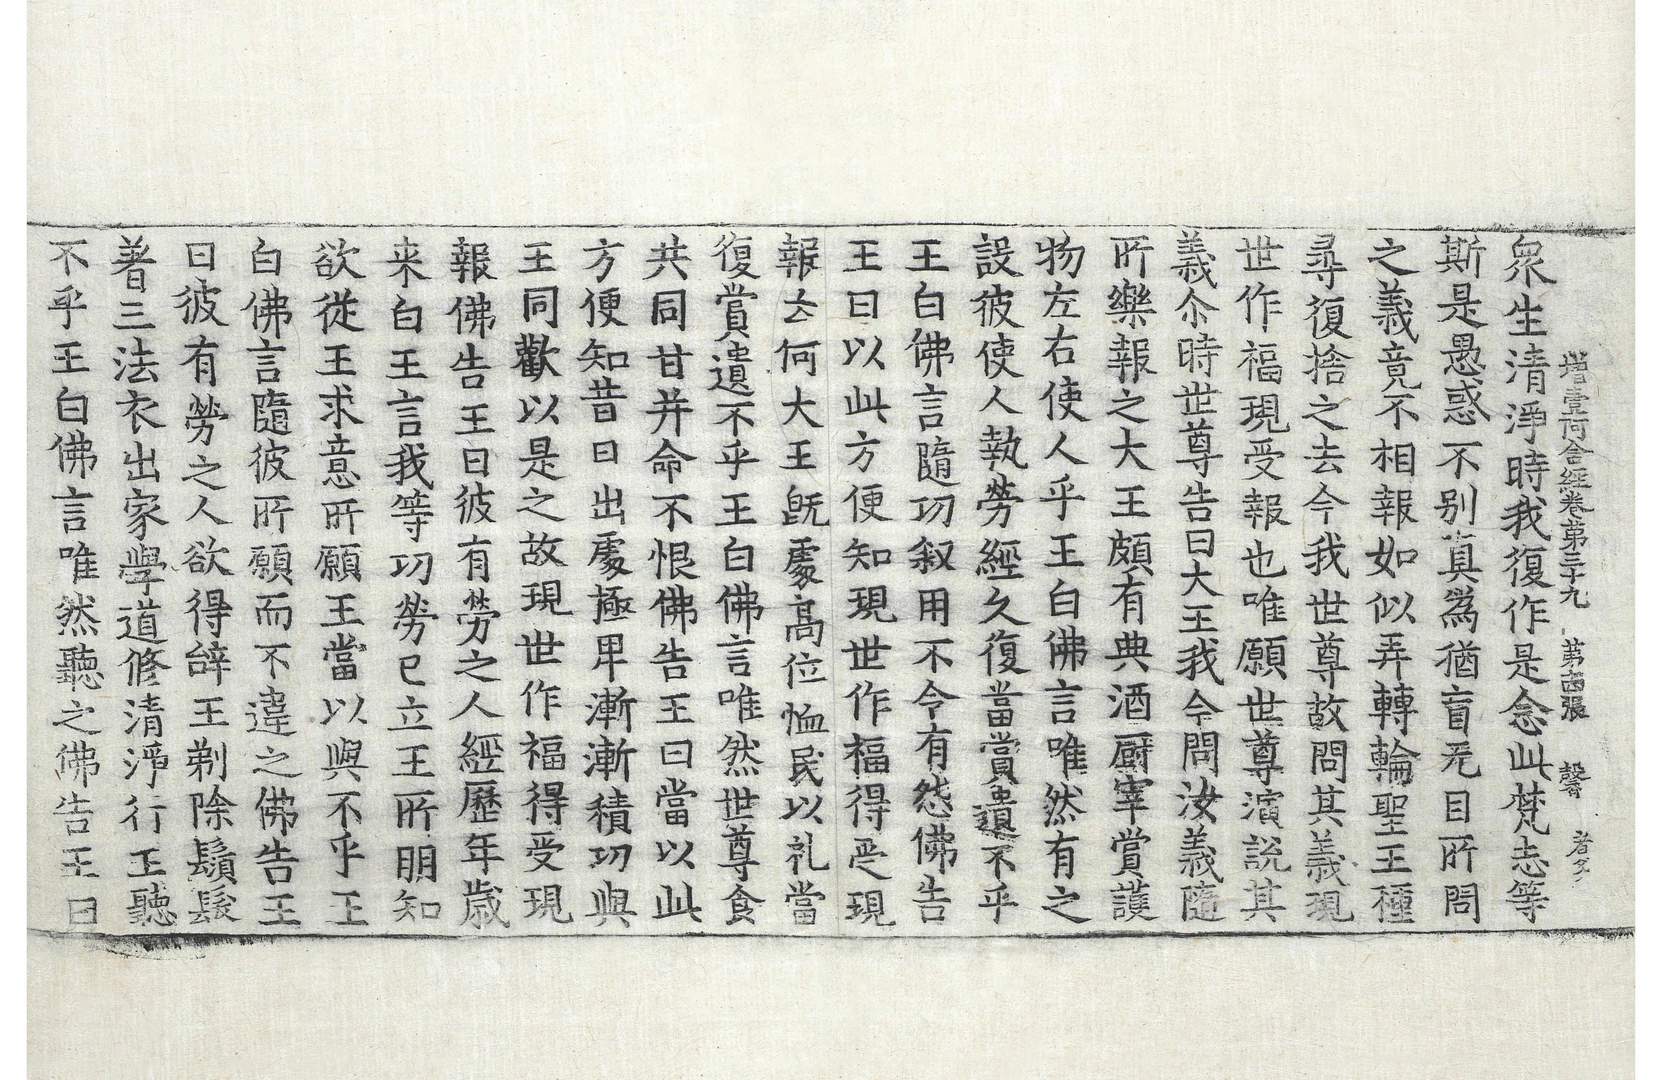 增壹阿含經卷第三十九 第十四張 馨 者多
衆生清淨時我復作是念此梵志等
斯是愚惑不別真爲猶盲无目所問
之義竟不相報如似弄轉輪聖王種
尋復捨之去今我世尊故問其義現
世作福現受報也唯願世尊演說其
義尒時世尊告曰大王我今問汝義隨
所樂報之大王頗有典酒厨宰賞護
物左右使人乎王白佛言唯然有之
設彼使人執勞經久復當賞遺不乎
王白佛言隨功叙用不令有怨佛告
王曰以此方便知現世作福得受現
報云何大王旣處高位恤民以礼當
復賞遺不乎王白佛言唯然世尊食
共同甘并命不恨佛告王曰當以此
方便知昔日出處極卑漸漸積功與
王同歡以是之故現世作福得受現
報佛告王曰彼有勞之人經歷年歲
来白王言我等功勞已立王所明知
欲從王求意所願王當以與不乎王
白佛言隨彼所願而不違之佛告王
曰彼有勞之人欲得辤王剃除鬚髮
著三法衣出家學道修清淨行王聽
不乎王白佛言唯然聽之佛告王曰